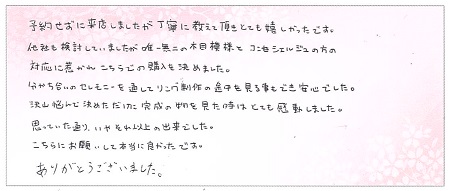 予約せずに来店しましたが丁寧に教えて頂きとても嬉しかったです。
他社も検討していましたが唯一無二の木目模様とコンセルジュの方の
対応に惹かれこちらでの購入を決めました。
分かち合いのセレモニーを通してリング制作の途中を見る事もでき安心でした。
沢山悩んで決めただけに完成の物を見た時はとても感動しました。
思っていた通り、いやそれ以上の出来でした。
こちらにお願いして本当に良かったです。
ありがとうございました。